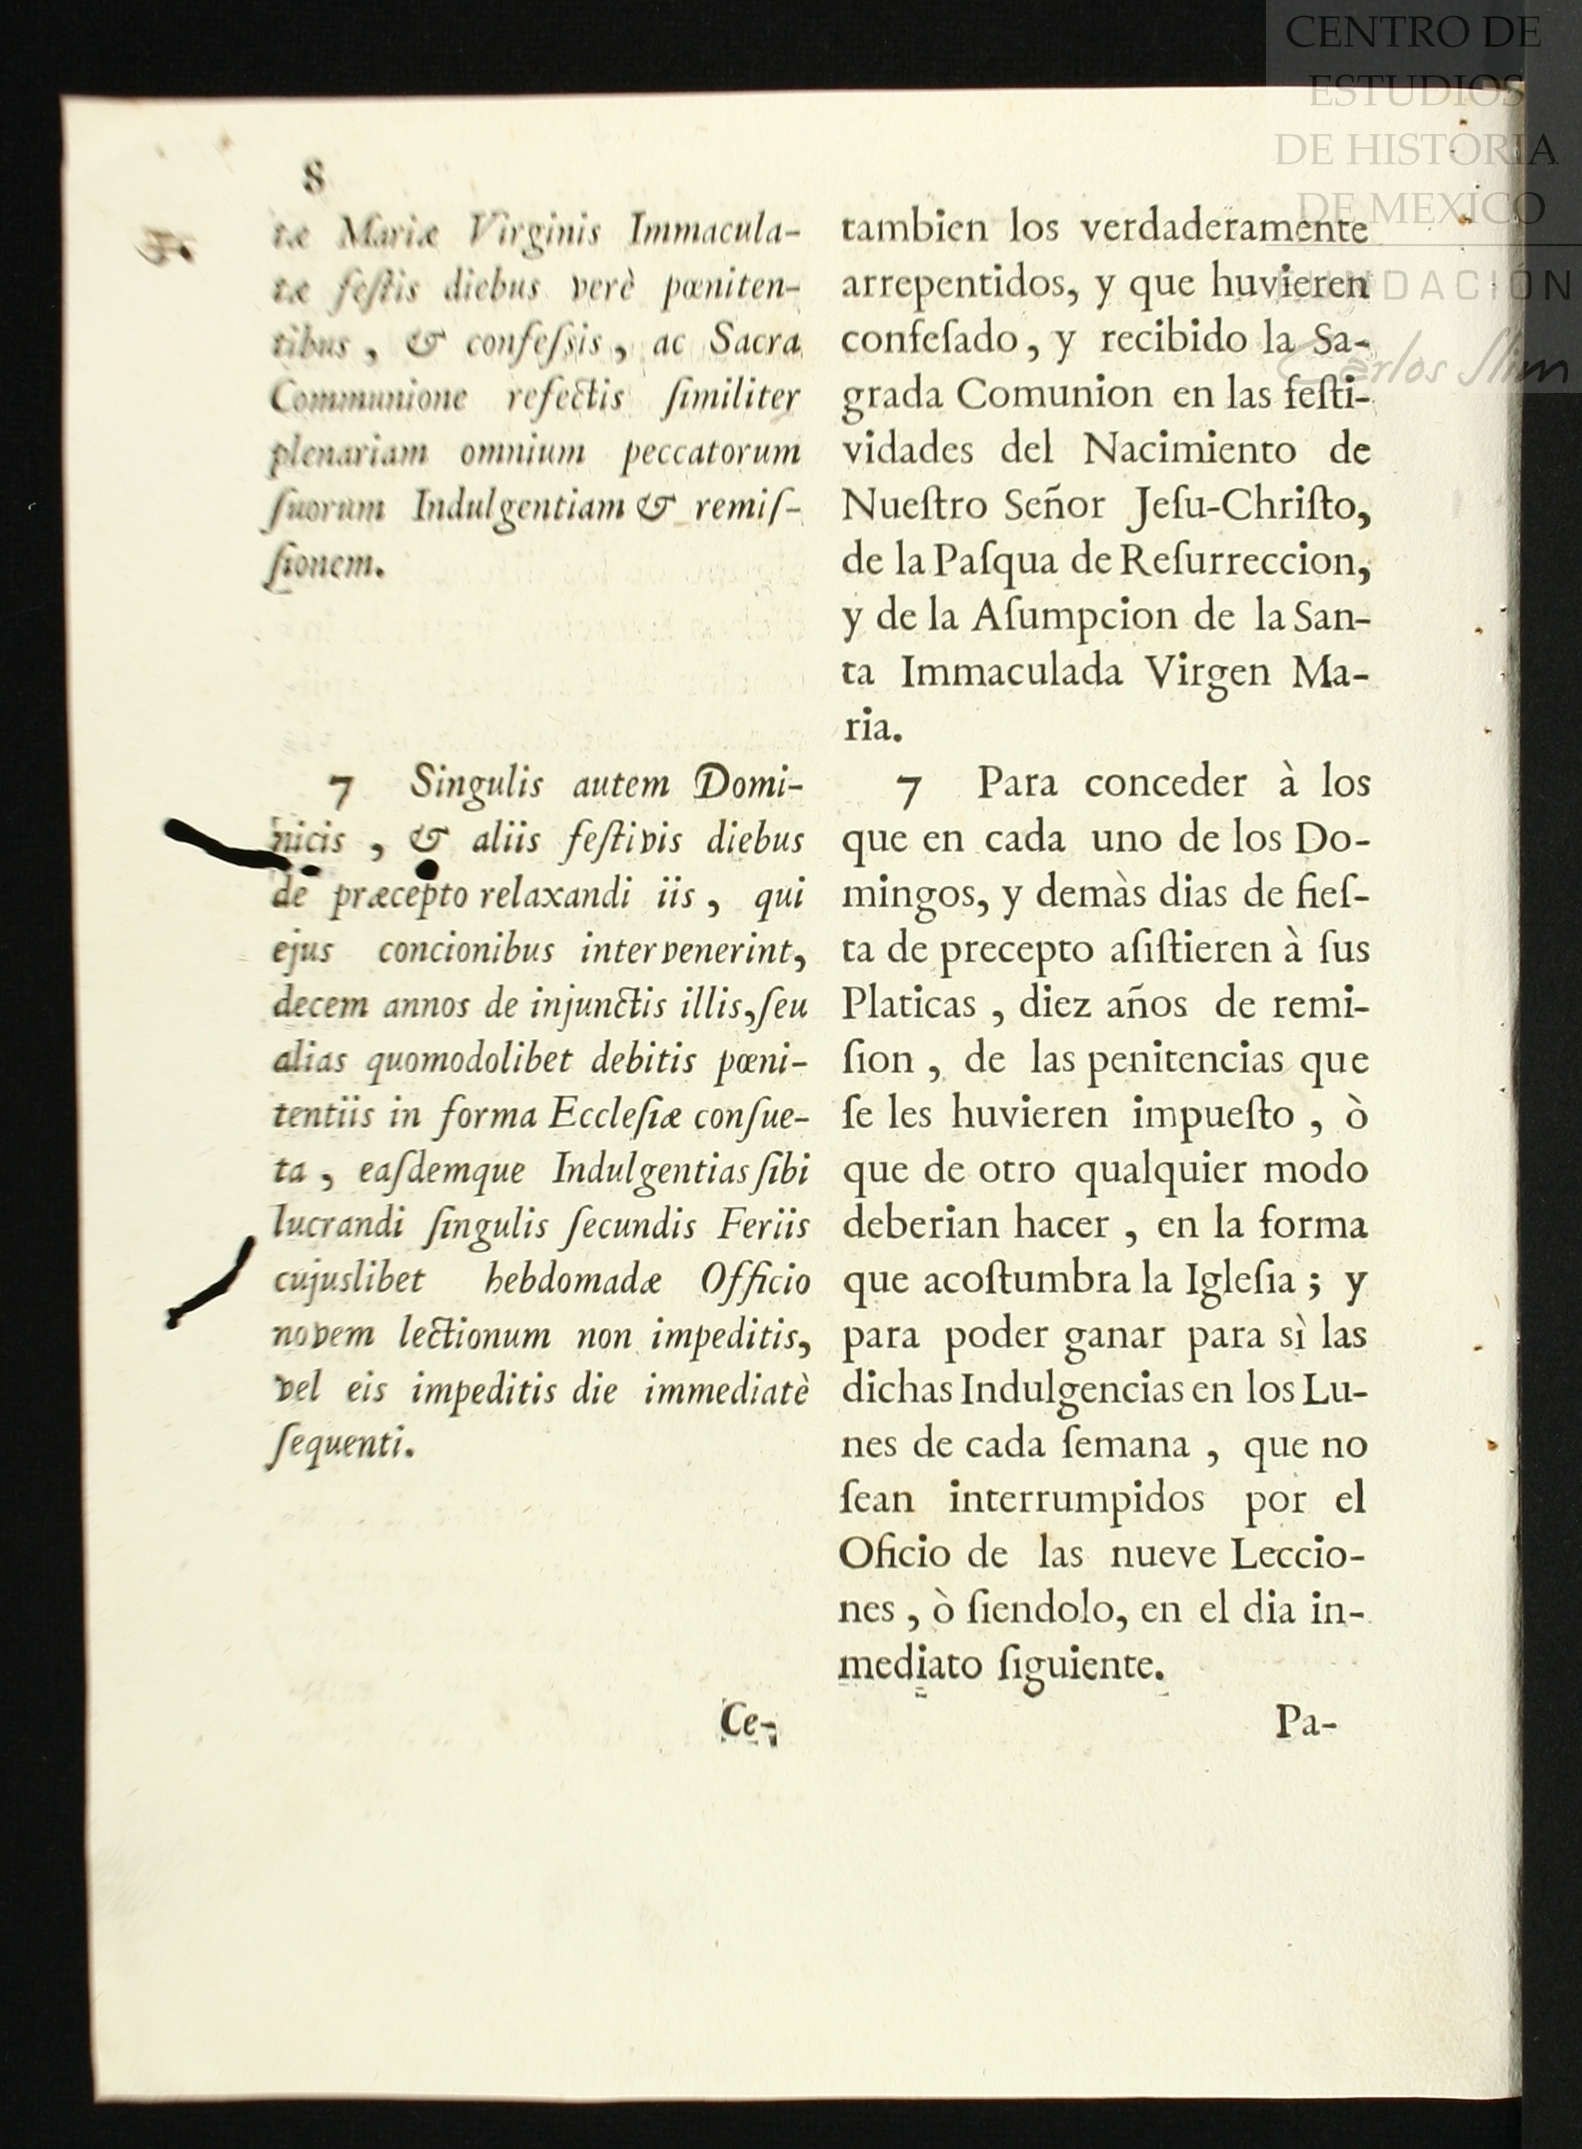 8
tæ Mariæ Virginis Immacula-
tæ feſtis diebus verè pœniten-
tibus, & confeſsis, ac Sacra
Communione refectis ſimiliter
plenariam omnium peccatorum
ſuorum Indulgentiam & remiſ-
ſionem.
7 Singulis autem Domi-
nicis, & aliis feſtivis diebus
de præcepto relaxandi iis, qui
ejus concionibus intervenerint,
decem annos de injunctis illis, ſeu
alias quomodolibet debitis pœni-
tentiis in forma Eccleſiæ conſue-
ta, eaſdemque Indulgentias ſibi
lucrandi ſingulis ſecundis Feriis
cujuslibet hebdomadæ Officio
novem lectionum non impeditis,
vel eis impeditis die immediatè
ſequenti.
Ce-
tambien los verdaderamente
arrepentidos, y que huvieren
confeſado, y recibido la Sa-
grada Comunion en las feſti-
vidades del Nacimiento de
Nueſtro Señor Jeſu-Chriſto,
de la Paſqua de Reſurreccion,
y de la Aſumpcion de la San-
ta Immaculada Virgen Ma-
ria.
7 Para conceder à los
que en cada uno de los Do-
mingos, y demàs dias de fieſ-
ta de precepto aſiſtieren à ſus
Platicas, diez años de remi-
ſion, de las penitencias que
ſe les huvieren impueſto, ò
que de otro qualquier modo
deberian hacer, en la forma
que acoſtumbra la Igleſia; y
para poder ganar para sì las
dichas Indulgencias en los Lu-
nes de cada ſemana, que no
ſean interrumpidos por el
Oficio de las nueve Leccio-
nes, ò ſiendolo, en el dia in-
mediato ſiguiente.
Pa-
CENTRO DE
ESTUDIOS
DE HISTORIA
DE MEXICO
FUNDACIÓN
Carlos Slim